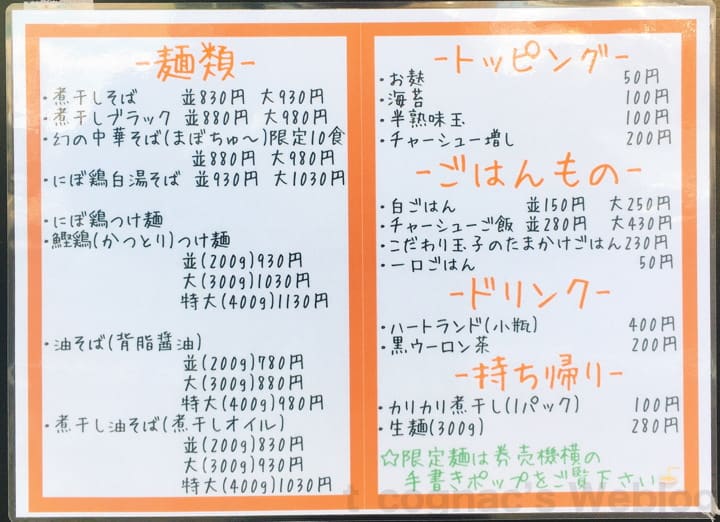 -麺類-
・煮干しそば 並830円 大930円
・煮干しブラック 並880円 大980円
・幻の中華そば(まぼちゅ〜)限定10食
並880円 大980円
・にぼ鶏白湯そば 並930円 大1030円
・にぼ鶏つけ麺
・鰹鶏(かつとり)つけ麺
並(200g)930円
大(300g)1030円
特大(400g)1130円
・油そば(背脂醤油)
並(200g)780円
大(300g)880円
特大(400g)980円
・煮干し油そば(煮干しオイル)
並(200g)830円
大(300g)930円
特大(400g)1030円
-トッピング-
・お麩 50円
・海苔 100円
・半熟味玉 100円
・チャーシュー増し 200円
-ごはんもの-
・白ごはん 並150円 大250円
・チャーシューご飯 並280円 大430円
・こだわり玉子のたまかけごはん230円
・一口ごはん 50円
-ドリンク-
・ハートランド(小瓶) 400円
・黒ウーロン茶 200円
-持ち帰り-
・カリカリ煮干し(1パック) 100円
・生麺(300g) 280円
☆限定麺は券売機横の
手書きポップをご覧下さい
t cognac's Weblog